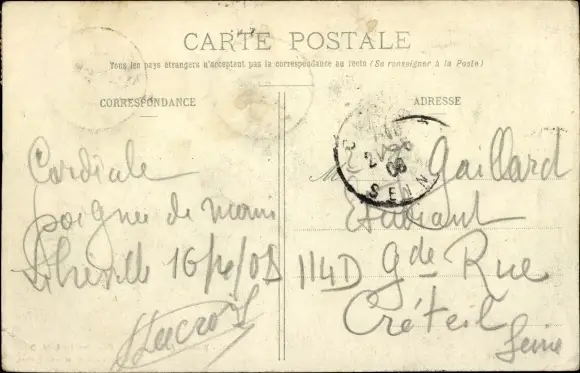 CARTE POSTALE
Tous les pays étrangers n'acceptent pas la correspondance au recto (Se renseigner à la Poste)
CORRESPONDANCE
ADRESSE
Cordiale
poignée de main
16/10/08
Lacroix
M Gaillard
Etudiant
114D Gde Rue
Créteil
Seine